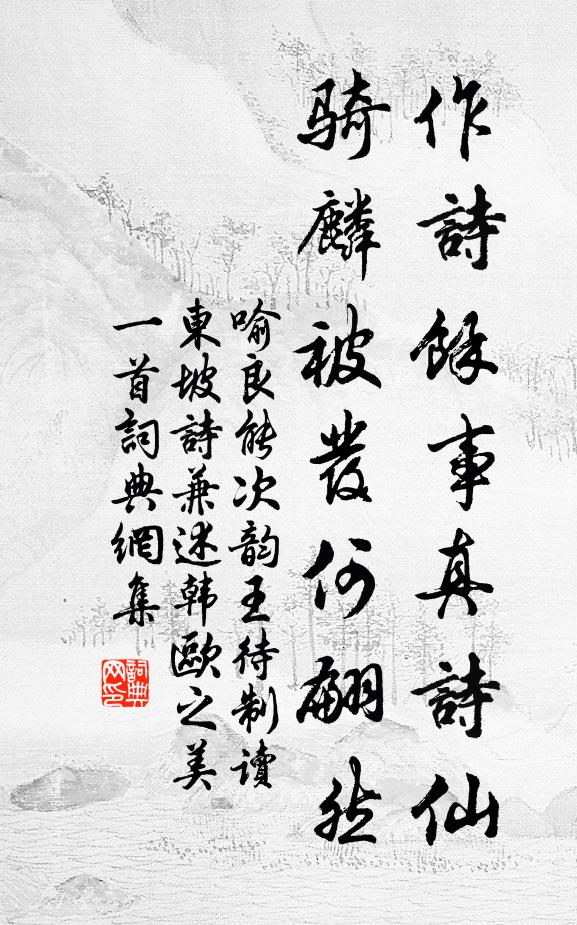 作詩餘事真詩仙
騎麟被發何翩然
喻良能次韵王待制读
東坡詩兼述韩歐之美
一首詞典網集
詞典网印